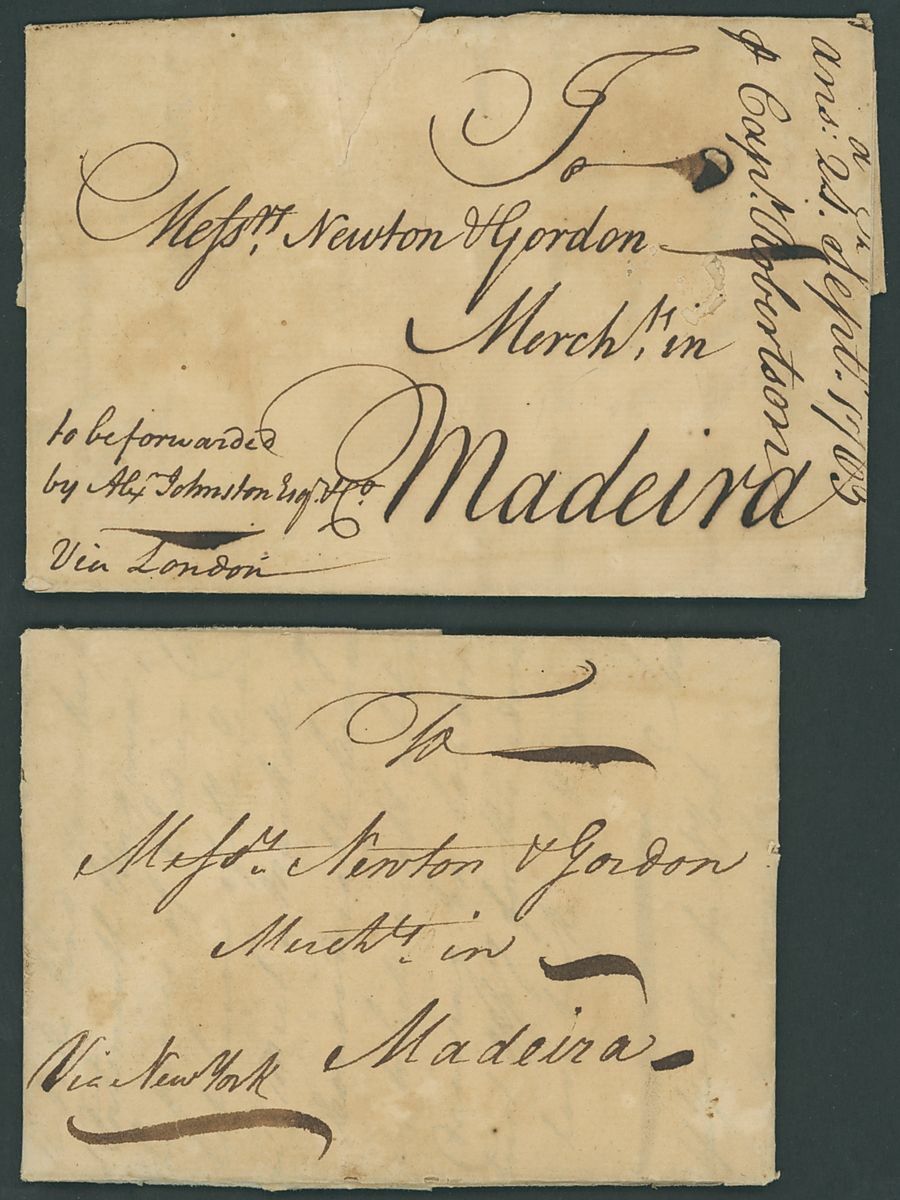 To
Messrs. Newton & Gordon
Mercht. in
Madeira
to be forwarded
by Alexr Johnston Esqr. & Co.
Via London
ans: 21. Sept. 1763
Capt. Robertson
To
Messrs. Newton & Gordon
Merchts. in
Madeira
Via New York